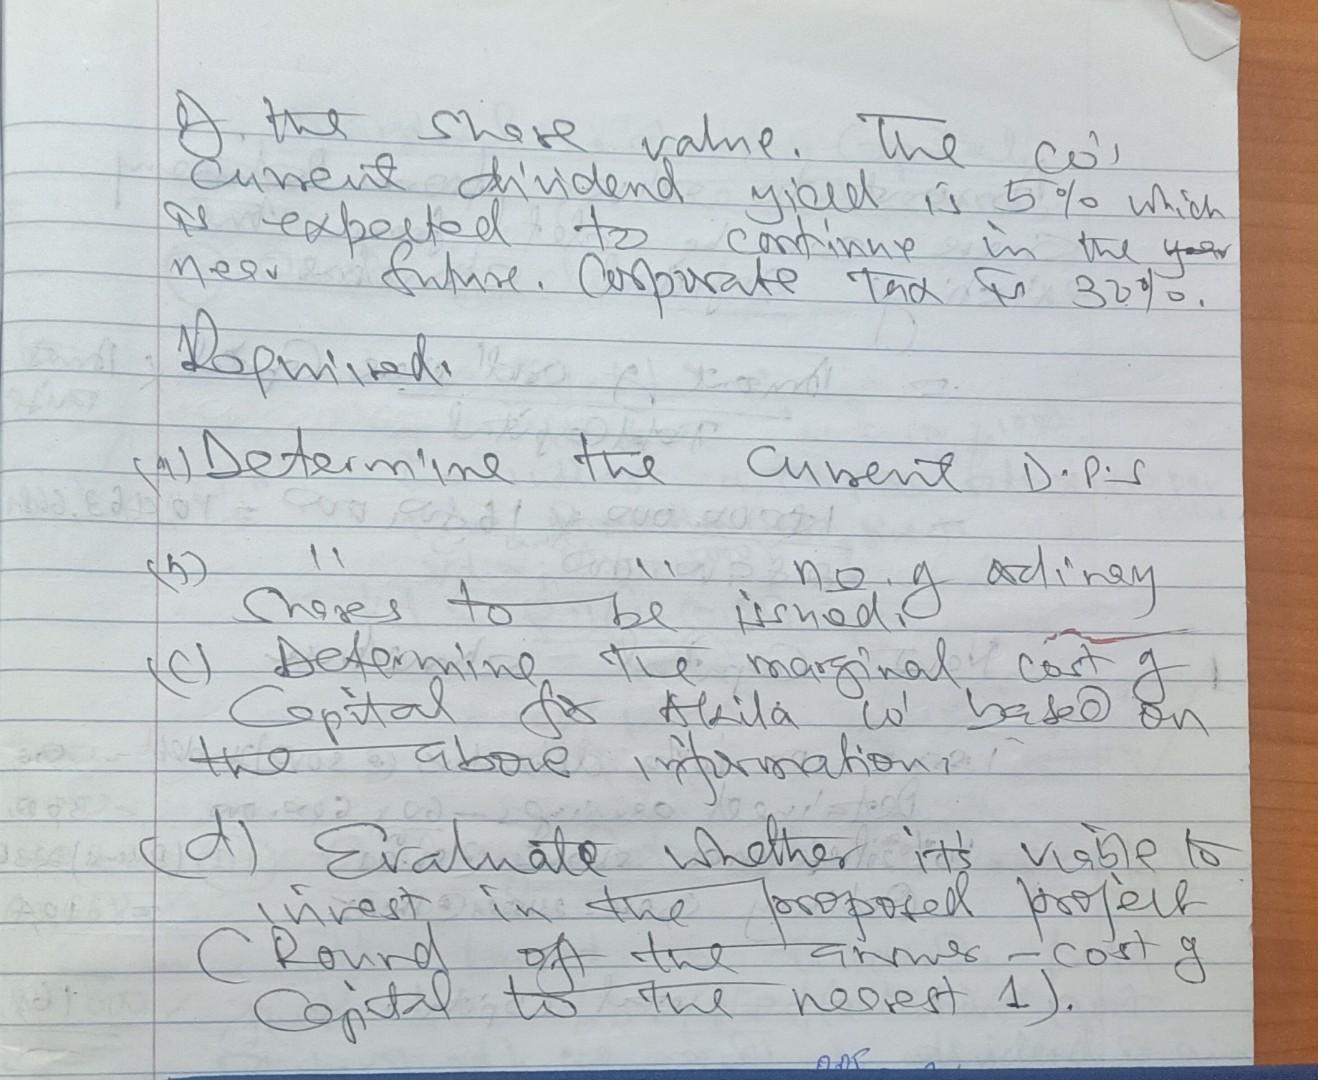 of the share value. The co's
current dividend yield is 5% which
is expected to continue in the year
near future. Corporate Tax is 30%.
Required.
(a) Determine the current D.P.S
(b) " " no. of ordinary
shares to be issued.
(c) Determine the marginal cost of
Capital for Akila co' based on
the above information.
(d) Evaluate whether it's viable to
invest in the proposed project
(Round off the answer - cost of
Capital to the nearest 1).